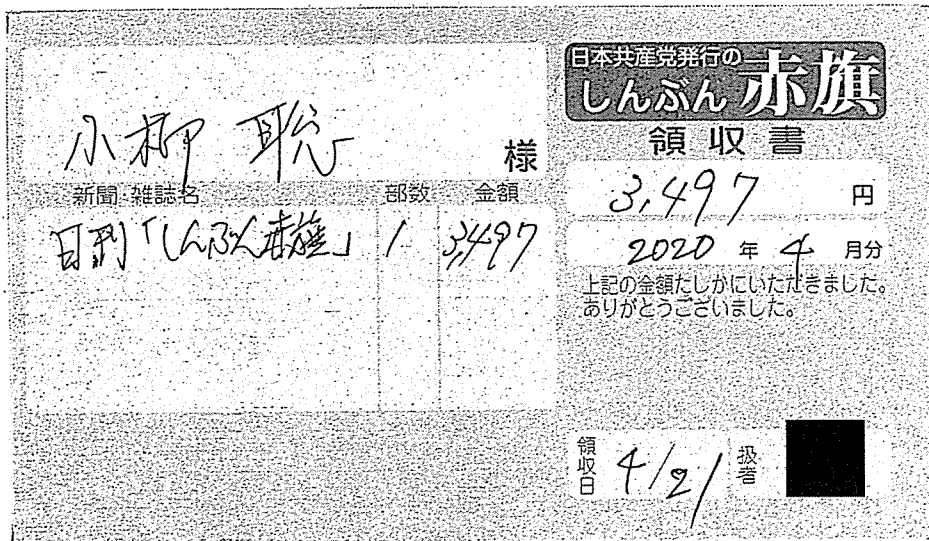 小柳 聡 様
新聞・雑誌名 部数 金額
日刊「しんぶん赤旗」 1 3,497
日本共産党発行の
しんぶん赤旗
領収書
3,497 円
2020 年 4 月分
上記の金額たしかにいただきました。
ありがとうございました。
領収日 4/21 扱者